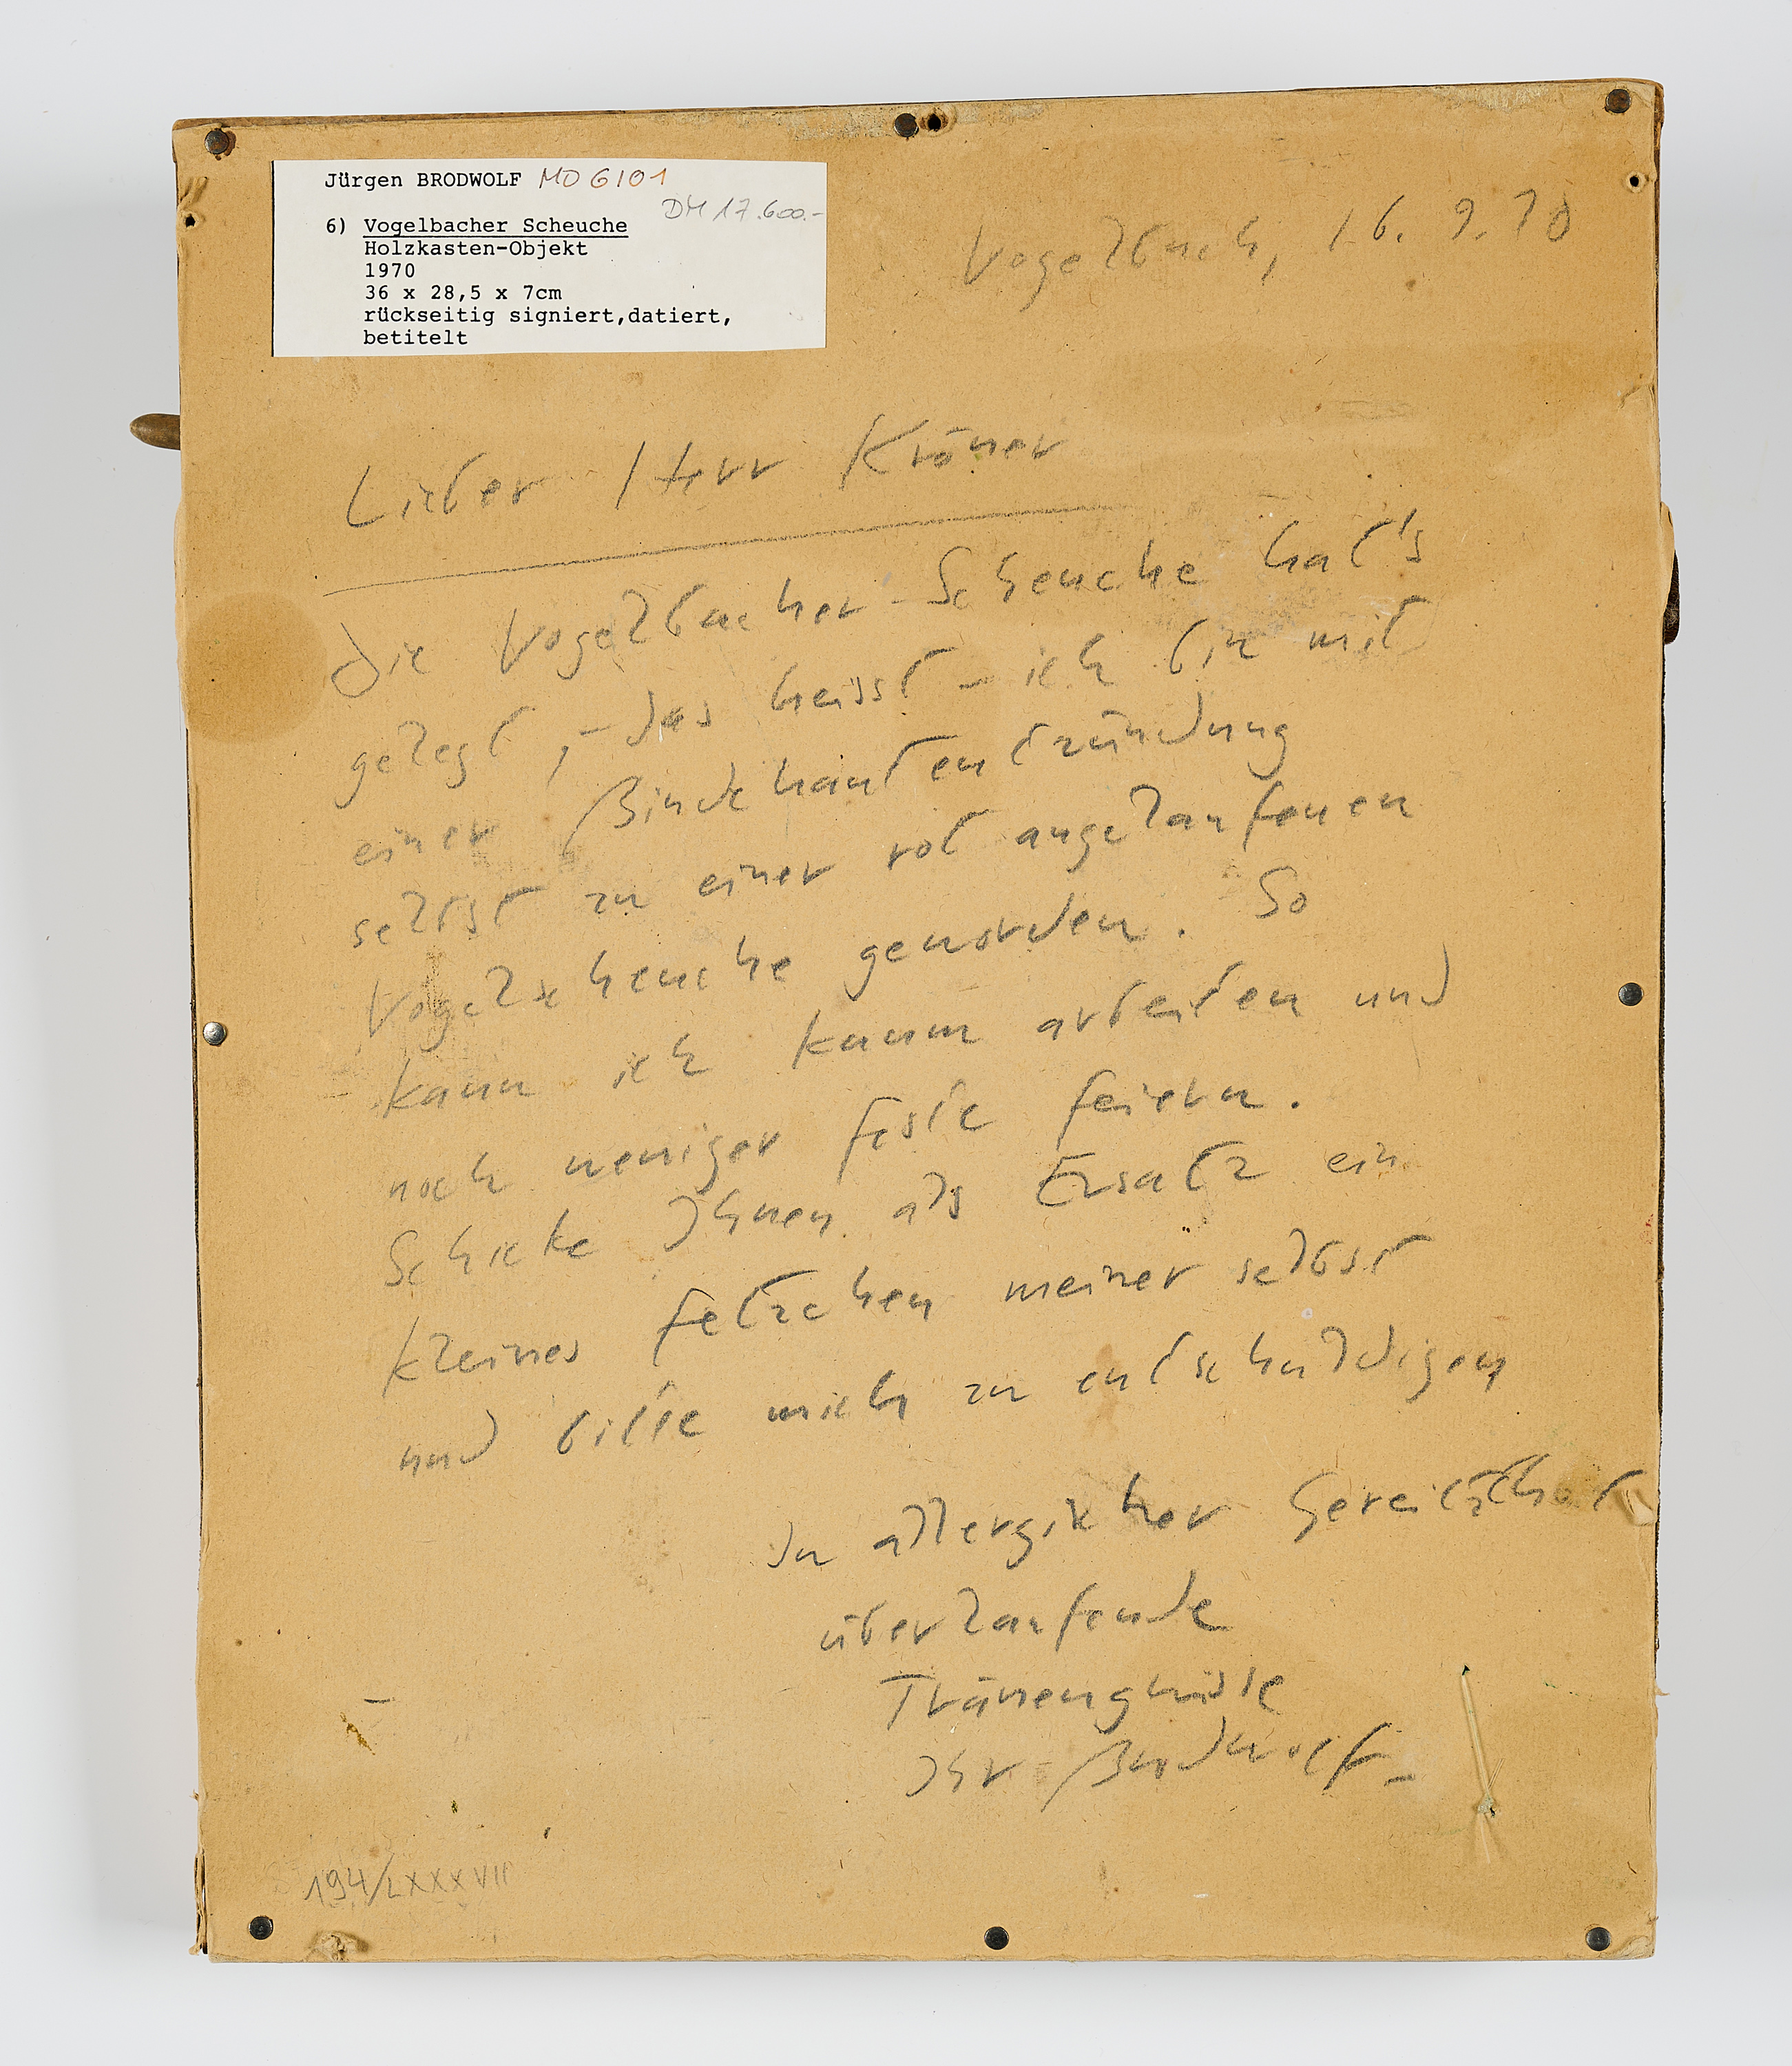 Jürgen BRODWOLF MO 6101
DM 17.600.-
6) Vogelbacher Scheuche
Holzkasten-Objekt
1970
36 x 28,5 x 7cm
rückseitig signiert,datiert,
betitelt
Vogelbach, 16. 9. 70
Lieber Herr Kröner
Die Vogelbacher-Scheuche hat's
gelegt, - das heisst - ich bin mit
einer Bindehautentzündung
selbst zu einer rot angelaufenen
Vogelscheuche geworden. So
kann ich kaum arbeiten und
noch weniger feste feiern.
Schicke Ihnen als Ersatz ein
kleines fetzchen meiner selbst
und bitte mich zu entschuldigen
In allergischer Gereiztheit
überlaufende
Tränengrüsse
Ihr Brodwolf-
194/LXXXVII